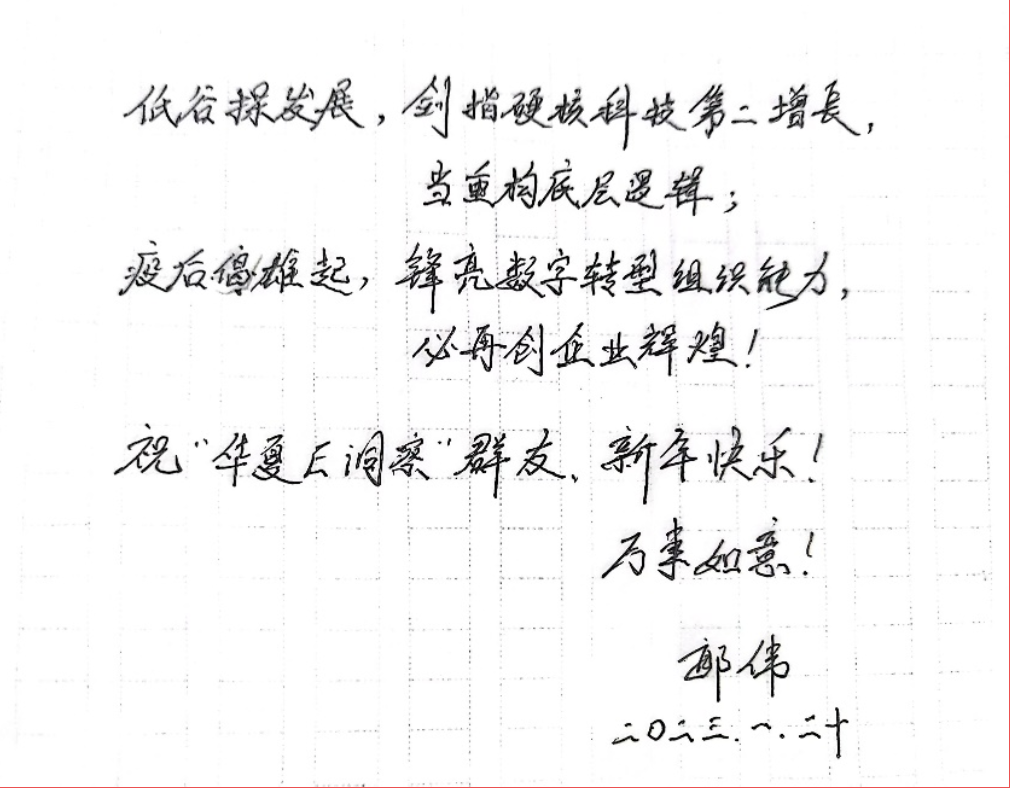 低谷探发展,剑指硬核科技第二增长,
当重构底层逻辑;
疫后倡雄起,锋亮数字转型组织能力,
必再创企业辉煌!
祝“华夏E洞察”群友、新年快乐!
万事如意!
郎伟
二〇二三.一.二十